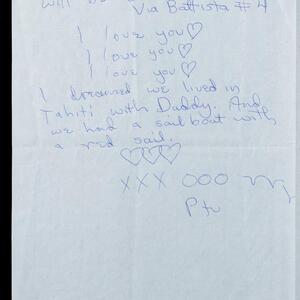 will be
Via Battista #4
I love you♡
I love you♡
I love you♡
I dreamed we lived in
Tahiti with Daddy. And
we had a sail boat with
a red sail.
♡♡♡
XXX OOO